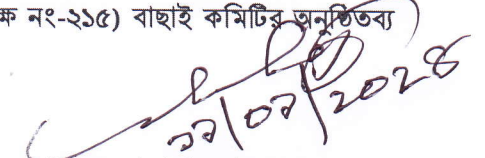 ক্ষ নং-২১৫) বাছাই কমিটির অনুষ্ঠিতব্য
১১/০১/২০২৪